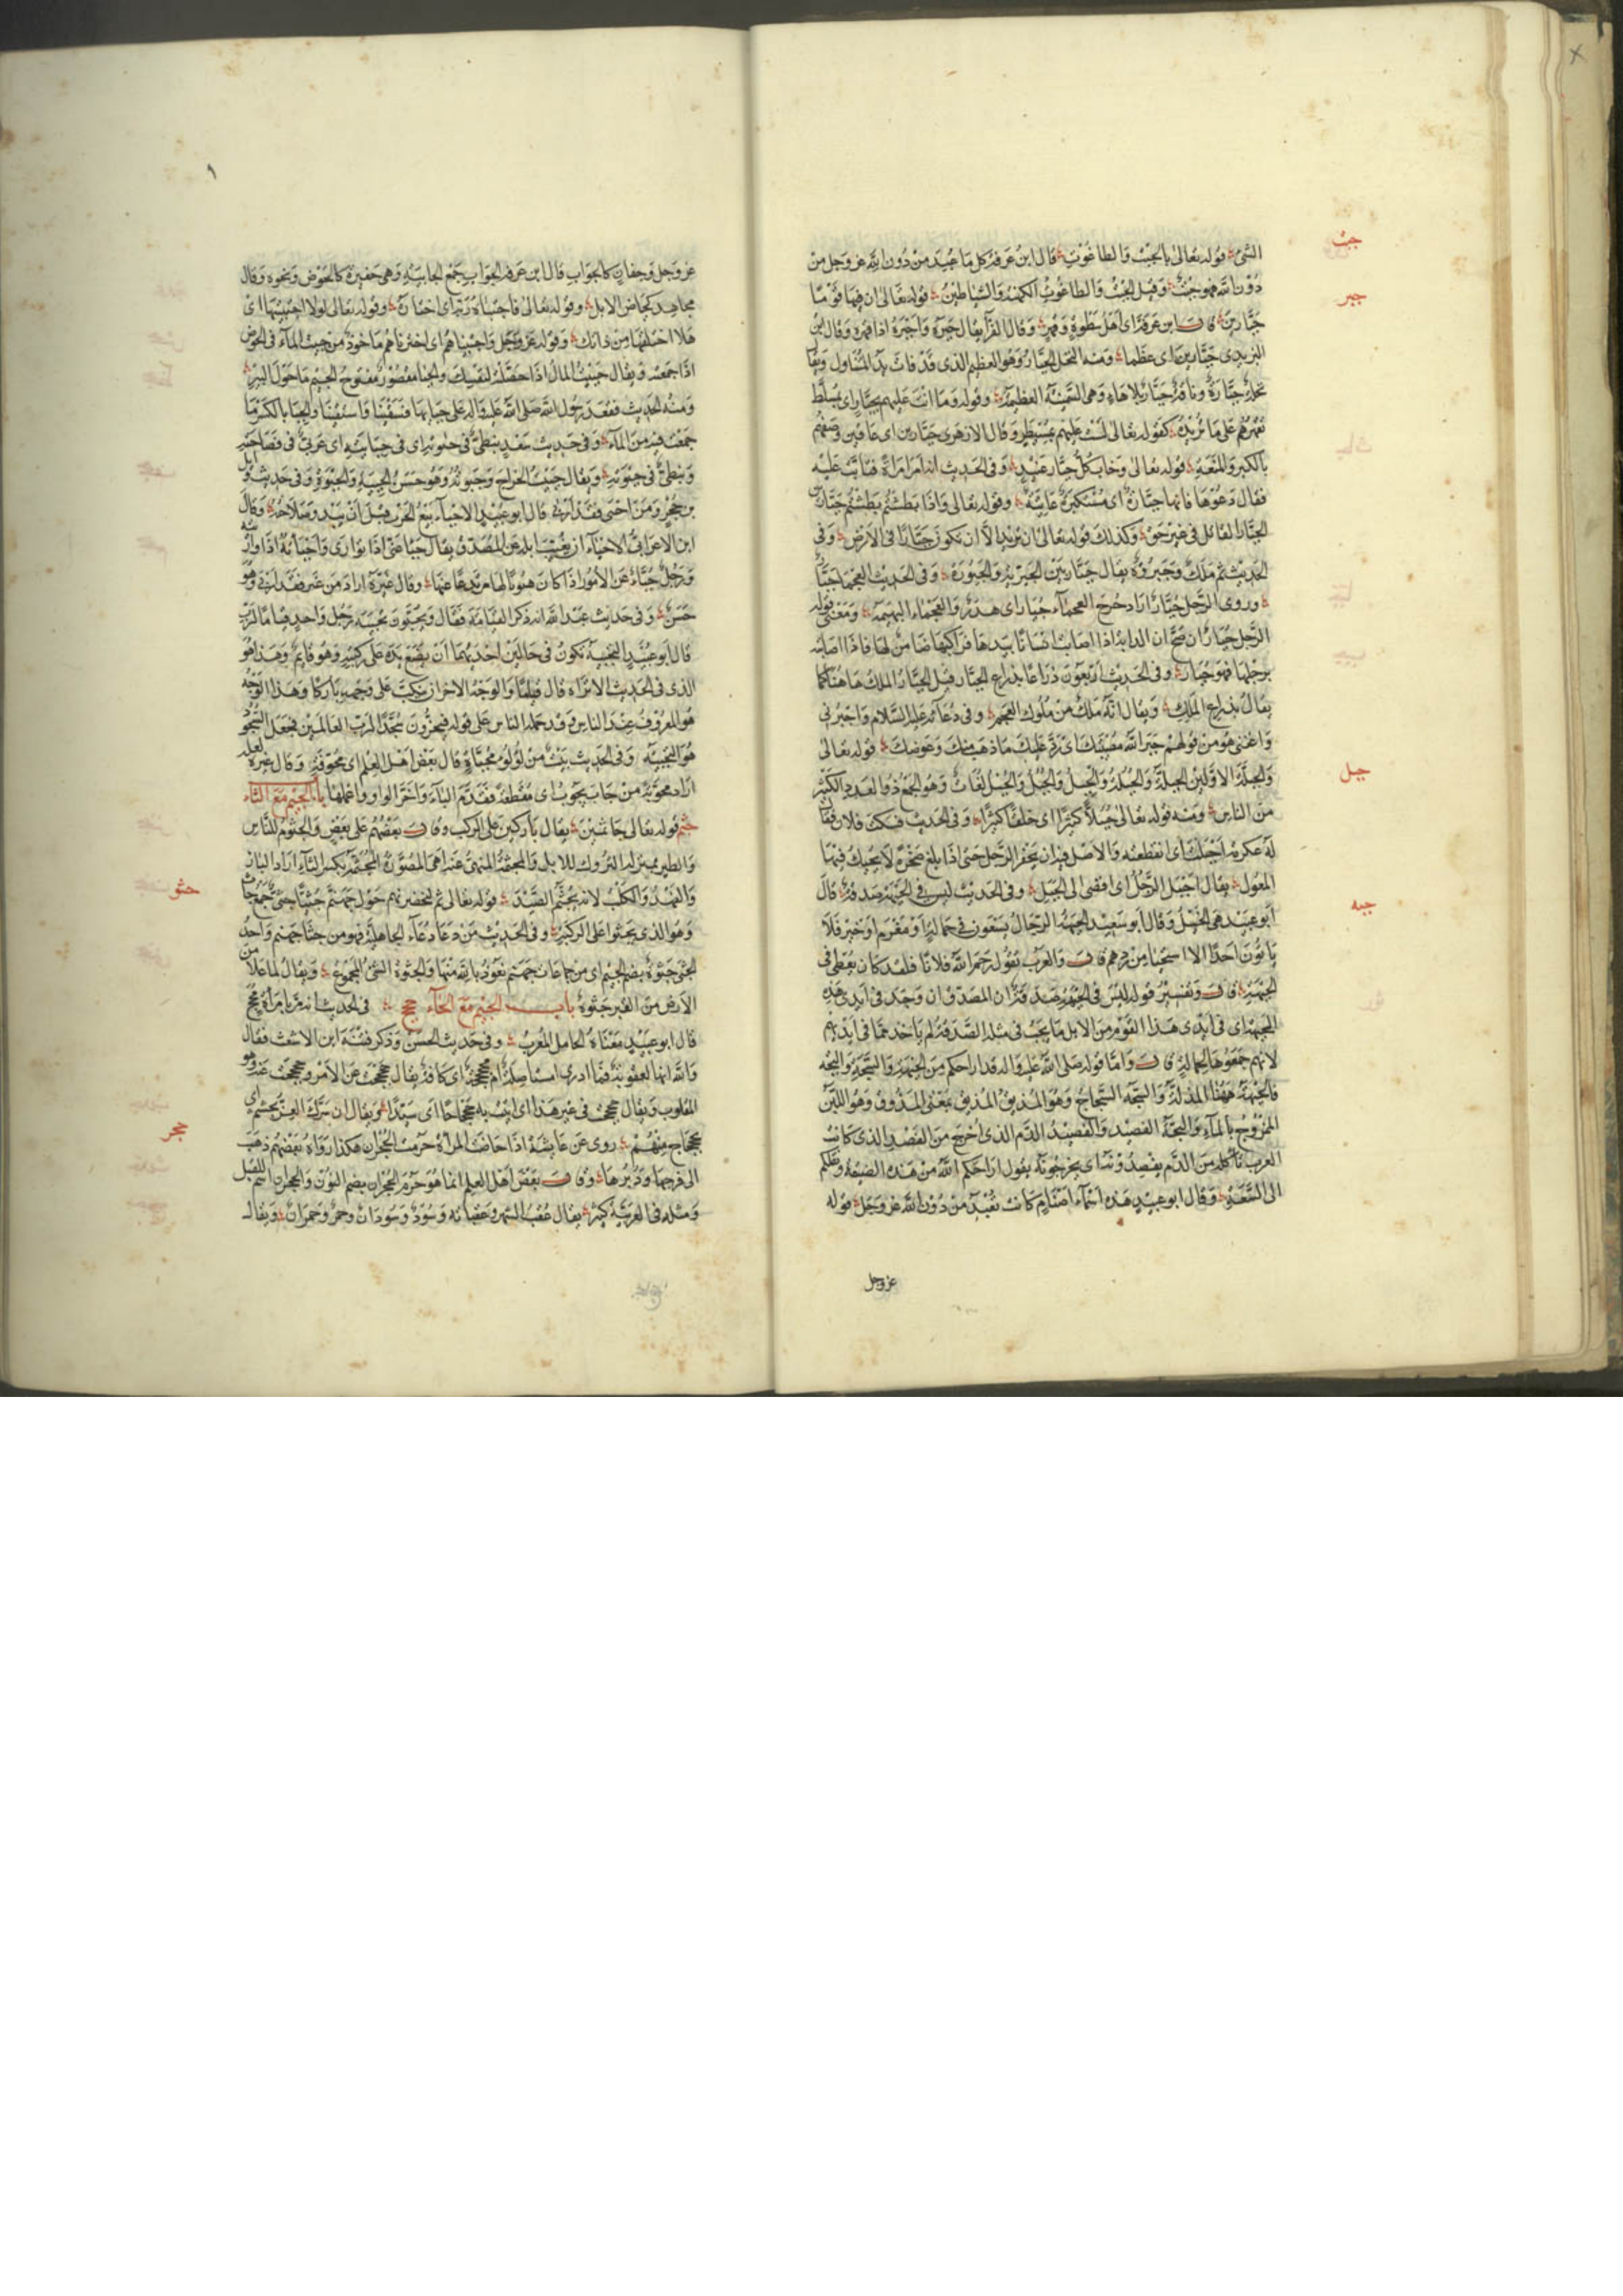 جبت
الشئ قوله تعالى بالجبت والطاغوت قال ابن عرفة كل ما عبد من دون الله عز وجل من
دون الله فهو جبت وقيل الجبت والطاغوت الكهنة والشياطين قوله تعالى ان فيها قوما
جبر
جبارين قال ابن عرفة اى اهل سطوة وقهر وقال الفرآ يقال جبره واجبره اذا قهره وقال ابن
اليزيدى جبارين اى عظما ومنه النخل الجبار وهو العظيم الذى قد فات يد المتناول ويقا
نخلة جبارة وناقة جبار بلا هاء وهى السمينة العظيمة وقوله وما انت عليهم بجبار اى بمسلط
تقهرهم على ما تريده كقوله تعالى لست عليهم بمسيطر وقال الازهرى جبارين اى عاتين وصفهم
بالكبر والمنعة قوله تعالى وخاب كل جبار عنيد وفى الحديث انه امر امراة فتابت عليه
فقال دعوها فانها جبارة اى مستكبرة عاتية وقوله تعالى واذا بطشتم بطشتم جبارين
الجبار القاتل فى غير حق وكذلك قوله تعالى ان تريد الا ان تكون جبارا فى الارض وفى
الحديث ثم ملك وجبروة يقال جبار بين الجبرية والجبورة وفى الحديث العجما جبار
وروى الرجل جبار اراد جرح العجمآء جبار اى هدر والعجماء البهيمة ومعنى قوله
الرجل جبار ان صح ان الدابة اذا اصابت انسانا بيدها فراكبها ضامن لها فاذا اصابته
برجلها فهو جبار وفى الحديث اربعون ذراعا بذراع الجبار قيل الجبار الملك هاهنا كما
يقال بذراع الملك ويقال انه ملك من ملوك العجم وفى دعائه عليه السلام واجبرنى
واغننى هو من قولهم جبر الله مصيبتك اى رد عليك ما ذهب منك وعوضك قوله تعالى
جبل
والجبلة الاولين الجبلة والجبلة والجبل والجبل والجبل لغات وهو الجمع ذو العدد الكثير
من الناس ومنه قوله تعالى جبلا كثيرا اى خلقا كثيرا وفى الحديث فسكت فلان فقال
له عكرمة اجبلت اى انقطعت والاصل فيه ان يحفر الرجل حتى اذا بلغ صخر لا يحيك فيها
المعول يقال اجبل الرجل اى افضى الى الجبل وفى الحديث ليس فى الجبهة صدقة قال
جبه
ابو عبيد هى الخيل وقال ابو سعيد الجبهة الرجال يسعون فى حمالة او مغرم او خير فلا
ياتون احدا الا استحيا من ردهم قال والعرب تقول رحم الله فلانا فلقد كان يعطى فى
الجبهة قال وتفسير قوله ليس فى الجبهة صدقة ان المصدق ان وجد فى ايدى هذه
الجبهة اى فى ايدى هذا القوم من الابل ما يجب فى مثله الصدقة لم ياخذ مما فى ايديهم
لانهم جمعوها لحمالة قال واما قوله صلى الله عليه واله قد اراحكم من الجبهة والسجة والبجة
فالجبهة ههنا المذلة والسجة السجاج وهو المذيق بمعنى المذوق وهو اللبن
الممزوج بالمآء والبجة الفصيد والفصيد الدم الذى اخرج من الفصد الذى كانت
العرب تأكله من الدم يفصدونه اى يخرجونه يقول اراحكم الله من هذه الضيقة ونقلكم
الى السعة وقال ابو عبيد هذه اسمآء اصنام كانت تعبد من دون الله عز وجل قوله
عز وجل
عز وجل وجفان كالجواب قال ابن عرفة الجواب جمع الجابية وهى حفيرة كالحوض ونحوه وقال
مجاهد كحياض الابل وقوله تعالى فاجتباه ربه اى اختاره وقوله تعالى لولا اجتبيتها اى
هلا اختلقتها من ذاتك وقوله عز وجل واجتبيناهم اى اخترناهم ماخوذ من جبيت المآء فى الحوض
اذا جمعته ويقال جبيت المال اذا حصلته لنفسك والجبا مقصور مفتوح الجيم ما حول البئر
ومنه الحديث فقعد رسول الله صلى الله عليه واله على جباها فسقينا واستقينا والجبا بالكسر ما
جمعت فيه من المآء وفى حديث سعد ينبطى فى حبوته اى فى جبايته اى عربى فى فصاحته
ونبطى فى جبوته ويقال جبيت الخراج وجبوته وهو حسن الجبية والجبوة وفى حديث وائل
بن حجر ومن اجبى فقد اربى قال ابو عبيد الاجبآء بيع الحرث قبل ان يبدو صلاحه وقال
ابن الاعرابى الاجبآء ان يغيب ابله عن المصدق يقال جبأ عنى اذا توارى واجبأته اذا واريته
ورجل جباء عن الامور اذا كان هيوبا لها مرتدعا عنها وقال غيره اراد من عين فقد اربى وهو
حسن وفى حديث عبد الله انه ذكر القيامة فقال ويجبون تجبية رجل واحد قياما لرب
قال ابو عبيد التجبية تكون فى حالين احديهما ان يضع يده على ركبتيه وهو قايم وهذا هو
الذى فى الحديث الا تراه قال قياما والوجه الاخر ان ينكب على وجهه باركا وهذا الوجه
هو المعروف عند الناس وقد حمله الناس على قوله فيخرون سجدا لرب العالمين فجعل السجود
هو التجبية وفى الحديث بيت من لؤلؤ مجباة قال بعض اهل العلم اى مجوفة وقال غيره لعله
اراد مجوبة من جاب يجوب اى مقطعة فقدم البآء واخر الواو واعلها باب الجيم مع الثاء
جثم قوله تعالى جاثمين يقال باركين على الركب وقال بعضهم على بعض والجثوم للناس
والطير بمنزلة البروك للابل والمجثمة المنهى عنها هى المصبورة المجثمة بكسر الثآء اراد الباز
جثو
والفهد والكلب لانه يجثم الصيد قوله تعالى ثم لنحضرنهم حول جهنم جثيا جثى جمع جاث
وهو الذى يجثوا على الركبة وفى الحديث من دعا دعآء الجاهلية فهو من جثا جهنم واحد
الجثى جثوة بضم الجيم اى من جماعات جهنم نعوذ بالله منها والجثوة الشئ المجموع ويقال لما علا من
الارض من القبر جثوة باب الجيم مع الحآء جحح فى الحديث انه مر بامراة مجح
قال ابو عبيد معناه الحامل المقرب وفى حديث الحسن وذكر فتنة ابن الاشعث فقال
والله انها لعقوبة فما ادرى امستاصلة ام مجحجحة اى كافة يقال جحجحت عن الامر وحجحجت عنه وهو
المقلوب ويقال جحجحت فى غير هذا اى اتيت به جحجاحا اى سيدا ويقال ان سرك العز فجحجح بجشم اى
جحر
بجحجاح منهم روى عن عايشة اذا حاضت المرأة حرمت الجحران هكذا رواه بعضهم ذهب
الى فرجها ودبرها وقال بعض اهل العلم انما هو حرم الجحران بضم النون والجحران اسم للقبل
ومثله فى العربية كثير يقال عقب الشهر وعقبانه وسود وسودان وحمر وحمران ويقال